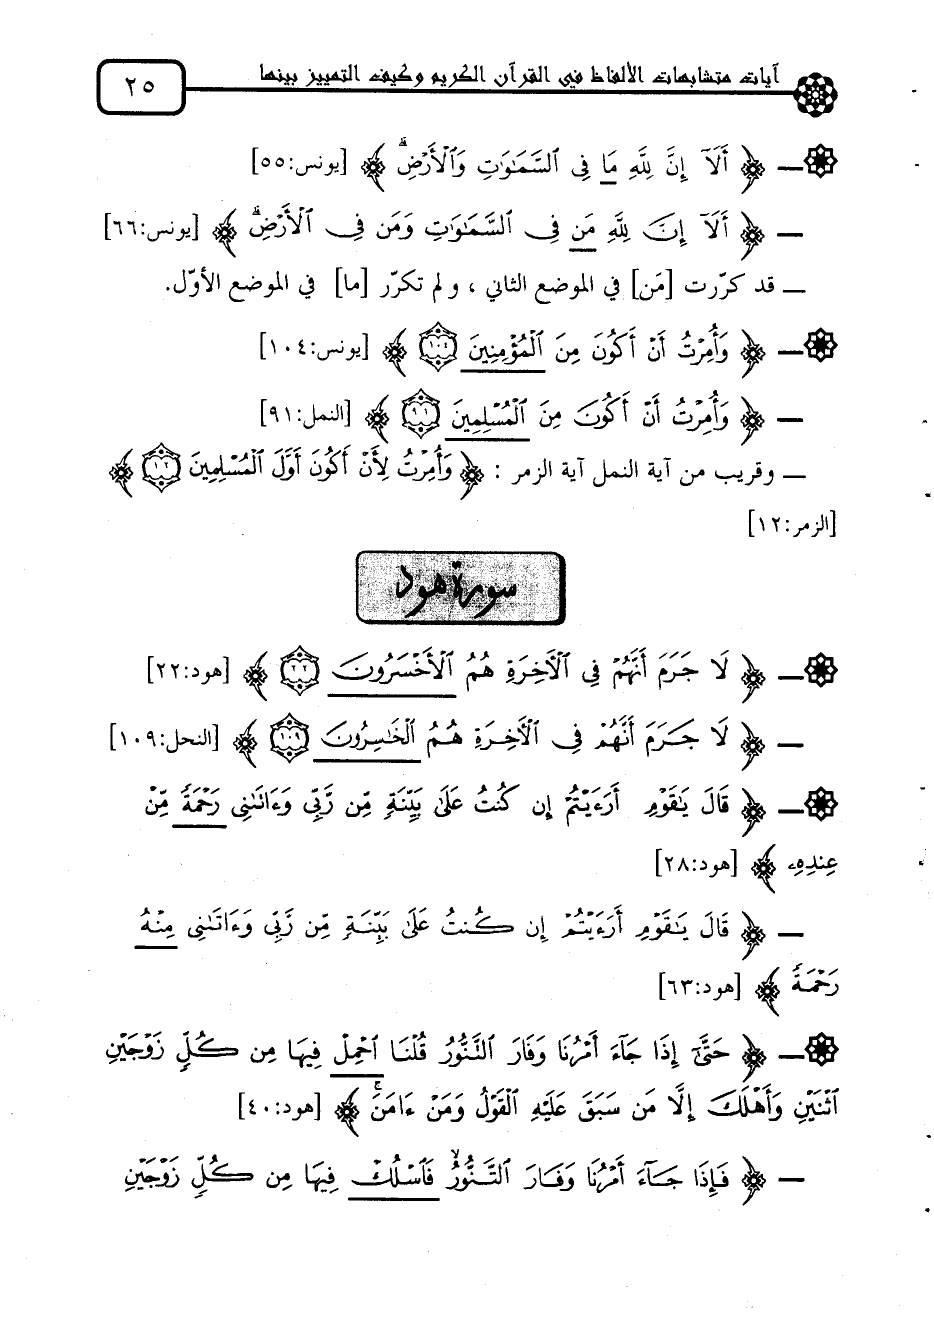 آيات متشابهات الألفاظ في القرآن الكريم وكيف التمييز بينها
٢٥
— ﴿ أَلَآ إِنَّ لِلَّهِ مَا فِى ٱلسَّمَـٰوَٰتِ وَٱلْأَرْضِ ۗ ﴾ [يونس:٥٥]
— ﴿ أَلَآ إِنَّ لِلَّهِ مَن فِى ٱلسَّمَـٰوَٰتِ وَمَن فِى ٱلْأَرْضِ ۗ ﴾ [يونس:٦٦]
— قد كرّرت [مَن] في الموضع الثاني ، ولم تكرّر [ما] في الموضع الأوّل.
— ﴿ وَأُمِرْتُ أَنْ أَكُونَ مِنَ ٱلْمُؤْمِنِينَ ١٠٤ ﴾ [يونس:١٠٤]
— ﴿ وَأُمِرْتُ أَنْ أَكُونَ مِنَ ٱلْمُسْلِمِينَ ٩١ ﴾ [النمل:٩١]
— وقريب من آية النمل آية الزمر : ﴿ وَأُمِرْتُ لِأَنْ أَكُونَ أَوَّلَ ٱلْمُسْلِمِينَ ١٢ ﴾
[الزمر:١٢]
سورة هود
— ﴿ لَا جَرَمَ أَنَّهُمْ فِى ٱلْأَخِرَةِ هُمُ ٱلْأَخْسَرُونَ ٢٢ ﴾ [هود:٢٢]
— ﴿ لَا جَرَمَ أَنَّهُمْ فِى ٱلْأَخِرَةِ هُمُ ٱلْخَـٰسِرُونَ ١٠٩ ﴾ [النحل:١٠٩]
— ﴿ قَالَ يَـٰقَوْمِ أَرَءَيْتُمْ إِن كُنتُ عَلَىٰ بَيِّنَةٍ مِّن رَّبِّى وَءَاتَـٰنِى رَحْمَةً مِّنْ
عِندِهِۦ ﴾ [هود:٢٨]
— ﴿ قَالَ يَـٰقَوْمِ أَرَءَيْتُمْ إِن كُنتُ عَلَىٰ بَيِّنَةٍ مِّن رَّبِّى وَءَاتَـٰنِى مِنْهُ
رَحْمَةً ﴾ [هود:٦٣]
— ﴿ حَتَّىٰٓ إِذَا جَآءَ أَمْرُنَا وَفَارَ ٱلتَّنُّورُ قُلْنَا ٱحْمِلْ فِيهَا مِن كُلٍّ زَوْجَيْنِ
ٱثْنَيْنِ وَأَهْلَكَ إِلَّا مَن سَبَقَ عَلَيْهِ ٱلْقَوْلُ وَمَنْ ءَامَنَ ۚ ﴾ [هود:٤٠]
— ﴿ فَإِذَا جَآءَ أَمْرُنَا وَفَارَ ٱلتَّنُّورُ ۙ فَٱسْلُكْ فِيهَا مِن كُلٍّ زَوْجَيْنِ